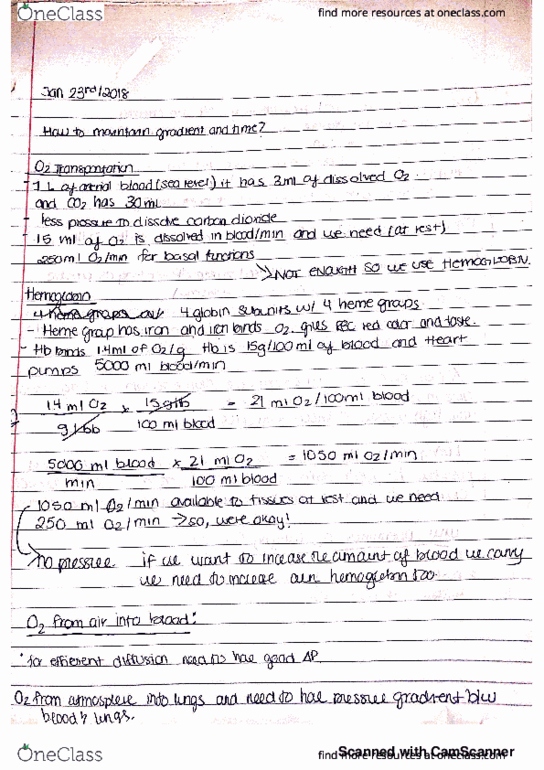 OneClass
find more resources at oneclass.com
Jan 23rd/2018
How to maintain gradient and time?
O2 Transportation
- 1 L of arterial blood (sea level) it has 3ml of dissolved O2
and CO2 has 30 ml
- less pressure to dissolve carbon dioxide
- 15 ml of O2 is dissolved in blood/min and we need (at rest)
250ml O2/min for basal functions
↳ NOT ENOUGH SO WE USE HEMOGLOBIN.
Hemoglobin
4 heme groups 4 globin subunits w/ 4 heme groups
- Heme group has iron and iron binds O2. gives RBC red color and taste.
- Hb binds 1.4ml of O2/g Hb is 15g/100 ml of blood and Heart
pumps 5000 ml blood/min
1.4 ml O2 x 15 g Hb = 21 ml O2/100ml blood
g Hb 100 ml blood
5000 ml blood x 21 ml O2 = 1050 ml O2/min
min 100 ml blood
1050 ml O2/min available to tissues at rest and we need
250 ml O2/min → so, were okay!
no pressure if we want to increase the amount of blood we carry
we need to increase our hemoglobin too
O2 from air into blood:
• for efficient diffusion need to have good ΔP
O2 from atmosphere into lungs and need to have pressure gradient b/w
blood & lungs.
OneClass
find more resources at oneclass.com
Scanned with CamScanner